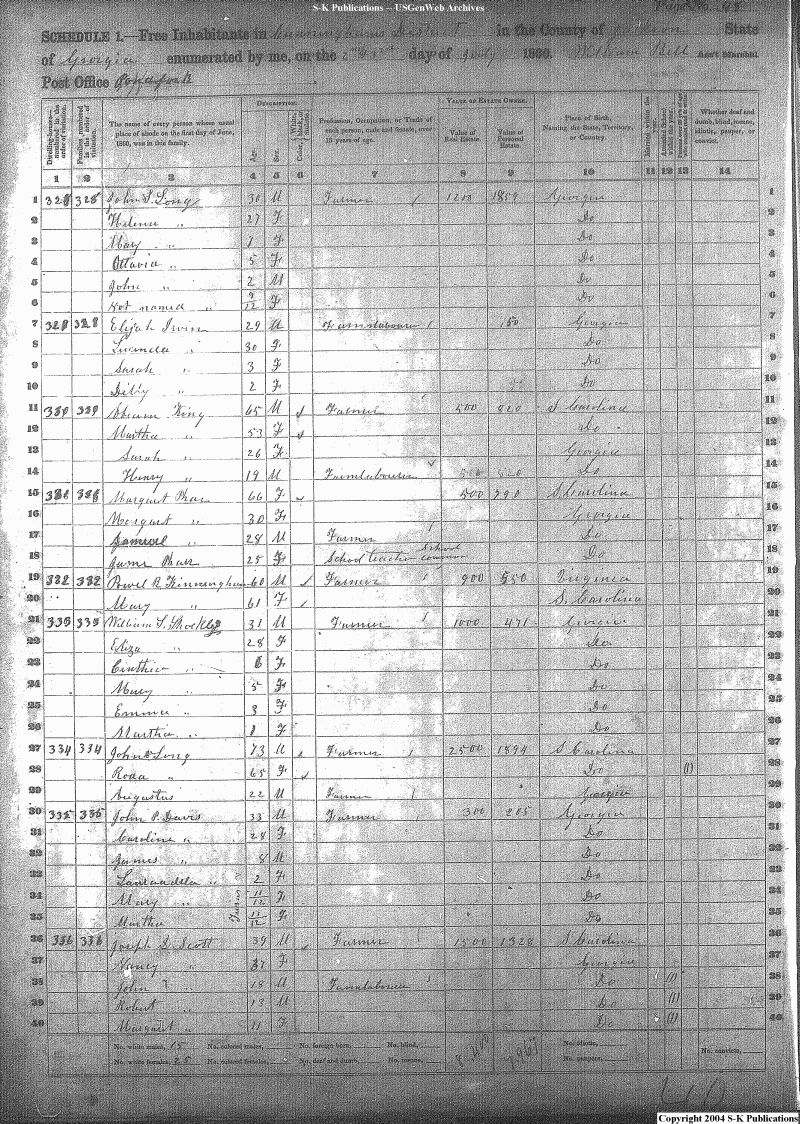 S-K Publications -- USGenWeb Archives
Page No. 48
SCHEDULE 1.—Free Inhabitants in Cunninghams District in the County of Jackson State
of Georgia enumerated by me, on the day of July 1860. William Bell Ass't Marshal.
Post Office
DESCRIPTION. VALUE OF ESTATE OWNED.
Dwelling-houses—numbered in the order of visitation. Families numbered in the order of visitation. The name of every person whose usual place of abode on the first day of June, 1860, was in this family. Age. Sex. Color, White, black, or mulatto. Profession, Occupation, or Trade of each person, male and female, over 15 years of age. Value of Real Estate. Value of Personal Estate. Place of Birth, Naming the State, Territory, or Country. Married within the year. Attended School within the year. Whether deaf and dumb, blind, insane, idiotic, pauper, or convict.
1 2 3 4 5 6 7 8 9 10 11 12 13 14
1 328 328 John S. Long 30 M Farmer 1200 1859 Georgia 1
2 " 27 F Do 2
3 Mary " 7 F Do 3
4 Ottavia " 5 F Do 4
5 John " 2 M Do 5
6 Not named " F Do 6
7 Elijah Irvin 29 M Farmlabourer 150 Georgia 7
8 Lucinda " 30 F Do 8
9 Sarah " 3 F Do 9
10 " 2 F Do 10
11 King 65 M Farmer 500 820 S Carolina 11
12 Martha " 53 F Do 12
13 Sarah " 26 F Georgia 13
14 Henry " 19 M Farmlabourer Do 14
15 Margaret Pharr 66 F 500 790 S. Carolina 15
16 Margaret " 30 F Georgia 16
17 Samuel " 28 M Farmer Do 17
18 Jame Pharr 25 F School teacher School common Do 18
19 332 332 60 M Farmer 900 550 Virginia 19
20 Mary " 61 F S. Carolina 20
21 333 333 William S. Shockley 31 M Farmer 1000 471 Georgia 21
22 Eliza " 28 F Do 22
23 Cinthia " 6 F Do 23
24 Mary " 5 F Do 24
25 Emma " 3 F Do 25
26 Martha " 1 F Do 26
27 334 334 John Long 73 M Farmer 2500 1894 S Carolina 27
28 Roda " 65 F Do (1) 28
29 Augustus 22 M Farmer Georgia 29
30 335 335 John P. Davis 33 M Farmer 300 205 Georgia 30
31 Caroline " 28 F Do 31
32 James " 8 M Do 32
33 " 2 F Do 33
34 Mary " 11/12 F Do 34
35 Martha Twins 11/12 F Do 35
36 336 336 Joseph S. Scott 39 M Farmer 1500 1328 S. Carolina 36
37 Nancy " 37 F Georgia 37
38 John " 18 M Farmlabourer Do (1) 38
39 Robert " 13 M Do (1) 39
40 Margaret " 11 F Do (1) 40
No. white males, 15 No. colored males, No. foreign born, No. blind, No. idiotic, No. convicts,
No. white females, 25 No. colored females, No. deaf and dumb, No. insane, No. paupers,
40
Copyright 2004 S-K Publications